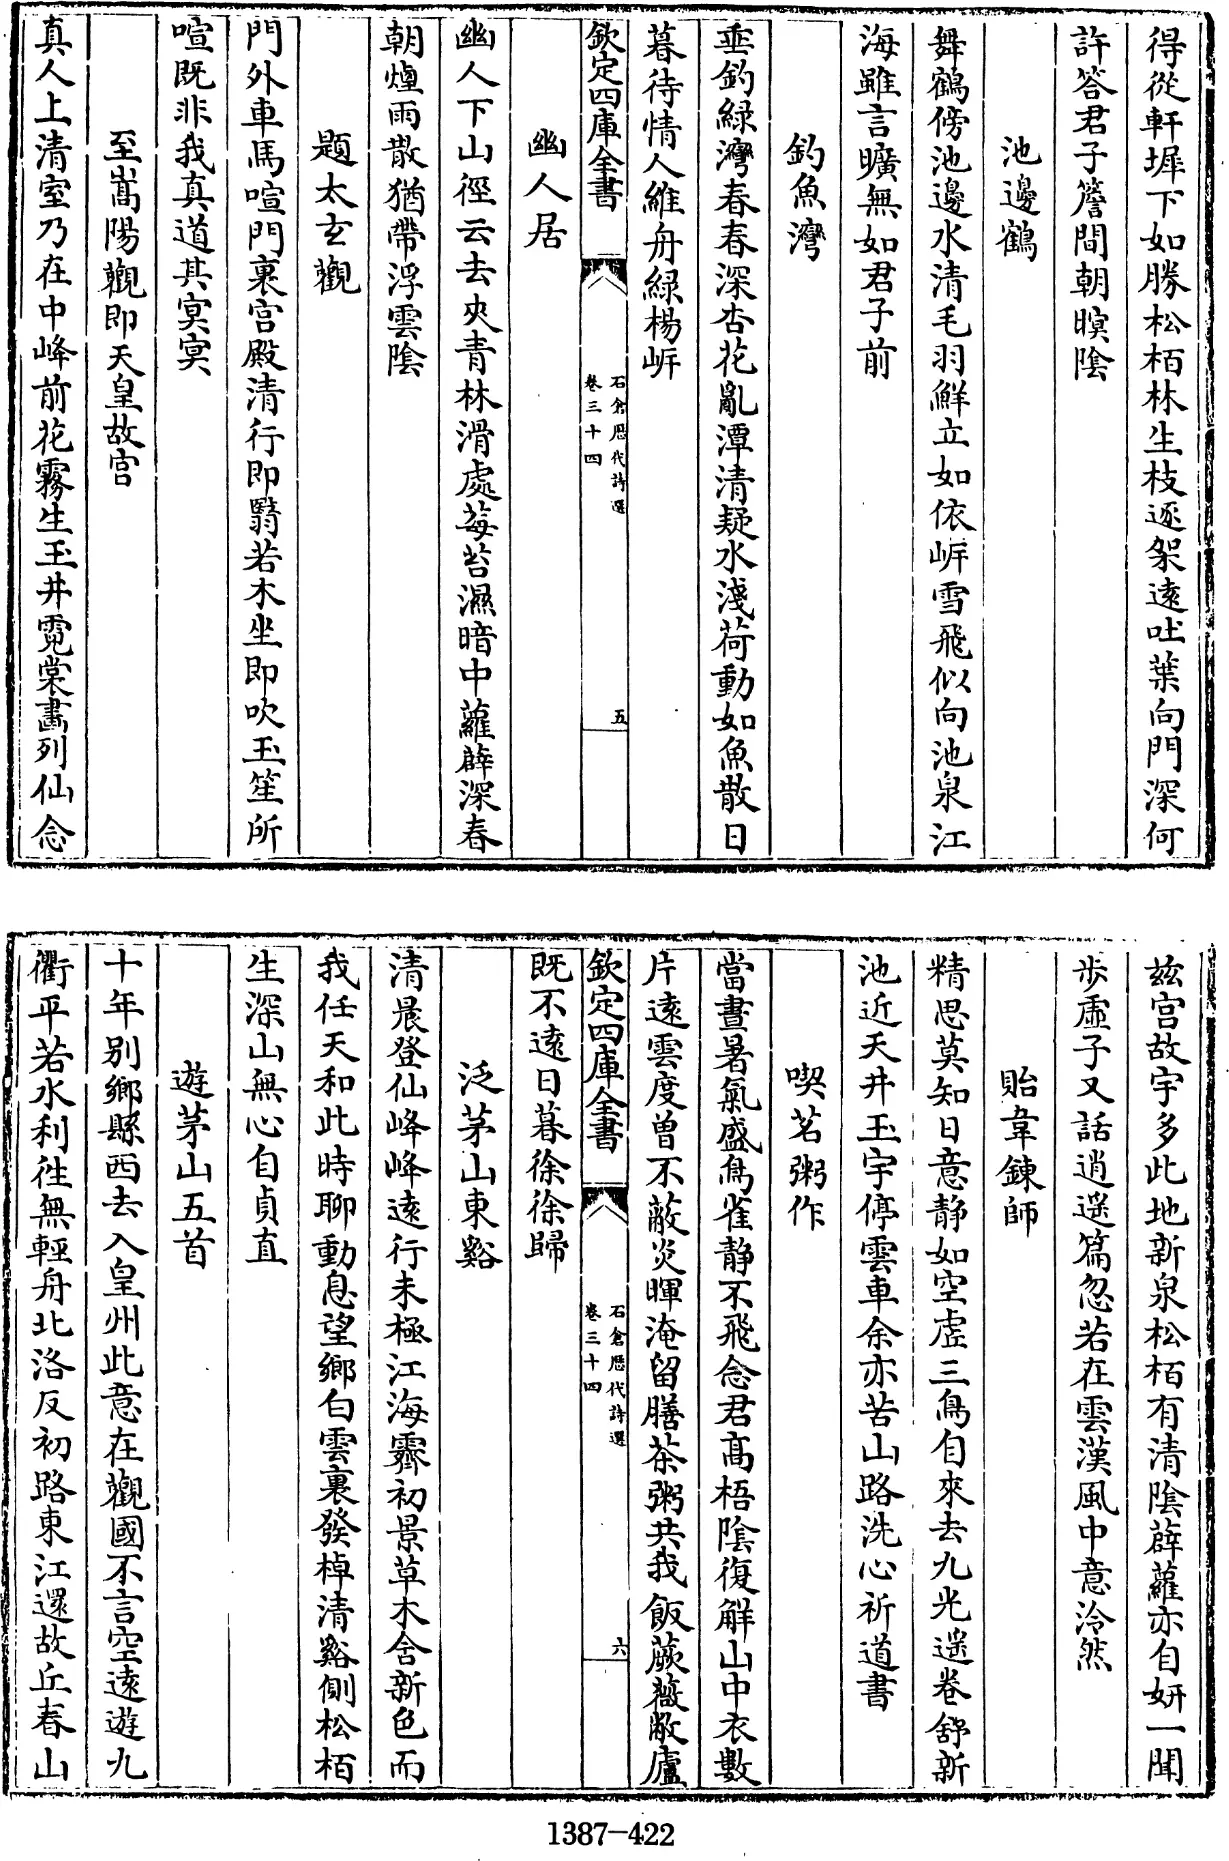 得從軒墀下如勝松栢林生枝逐架遠吐葉向門深何
許答君子簷間朝暝陰
池邊鶴
舞鶴傍池邊水清毛羽鮮立如依岍雪飛似向池泉江
海雖言曠無如君子前
釣魚灣
垂釣緑灣春春深杏花亂潭清疑水淺荷動如魚散日
暮待情人維舟緑楊岍
欽定四庫全書
石倉歴代詩選
卷三十四
五
幽人居
幽人下山徑云去夾青林滑處莓苔濕暗中蘿薜深春
朝煙雨散猶帶浮雲陰
題太玄觀
門外車馬喧門裏宫殿清行即翳若木坐即吹玉笙所
喧既非我真道其冥冥
至嵩陽觀即天皇故宫
真人上清室乃在中峰前花霧生玉井霓裳畫列仙念
兹宫故宇多此地新泉松栢有清陰薜蘿亦自妍一聞
步虛子又話逍遥篇忽若在雲漢風中意泠然
貽韋鍊師
精思莫知日意静如空虚三鳥自來去九光遥卷舒新
池近天井玉宇停雲車余亦苦山路洗心祈道書
喫茗粥作
當晝暑氣盛鳥雀静不飛念君髙梧陰復解山中衣數
片遠雲度曾不蔽炎暉淹留膳茶粥共我飯蕨薇敝廬
欽定四庫全書
石倉歴代詩選
卷三十四
六
既不遠日暮徐徐歸
泛茅山東谿
清晨登仙峰峰遠行未極江海霽初景草木含新色而
我任天和此時聊動息望鄉白雲裏發棹清谿側松栢
生深山無心自貞直
遊茅山五首
十年别鄉縣西去入皇州此意在觀國不言空遠遊九
衢平若水利徃無輕舟北洛反初路東江還故丘春山
1387-422